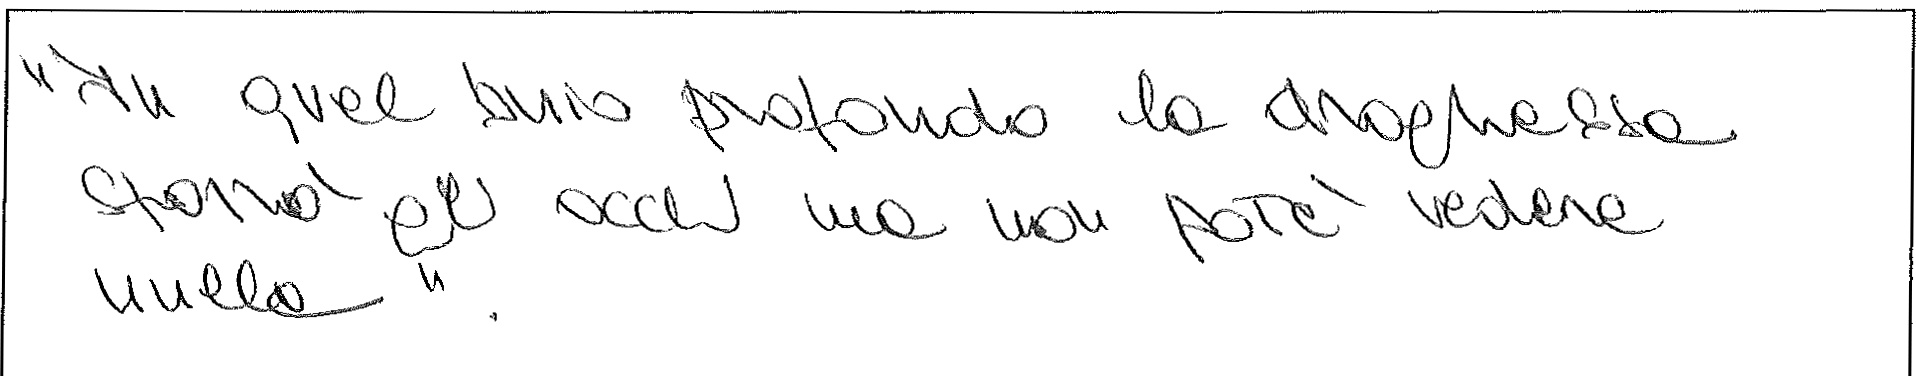 "In quel buio profondo la draghessa
sforzò gli occhi ma non potè vedere
nulla".